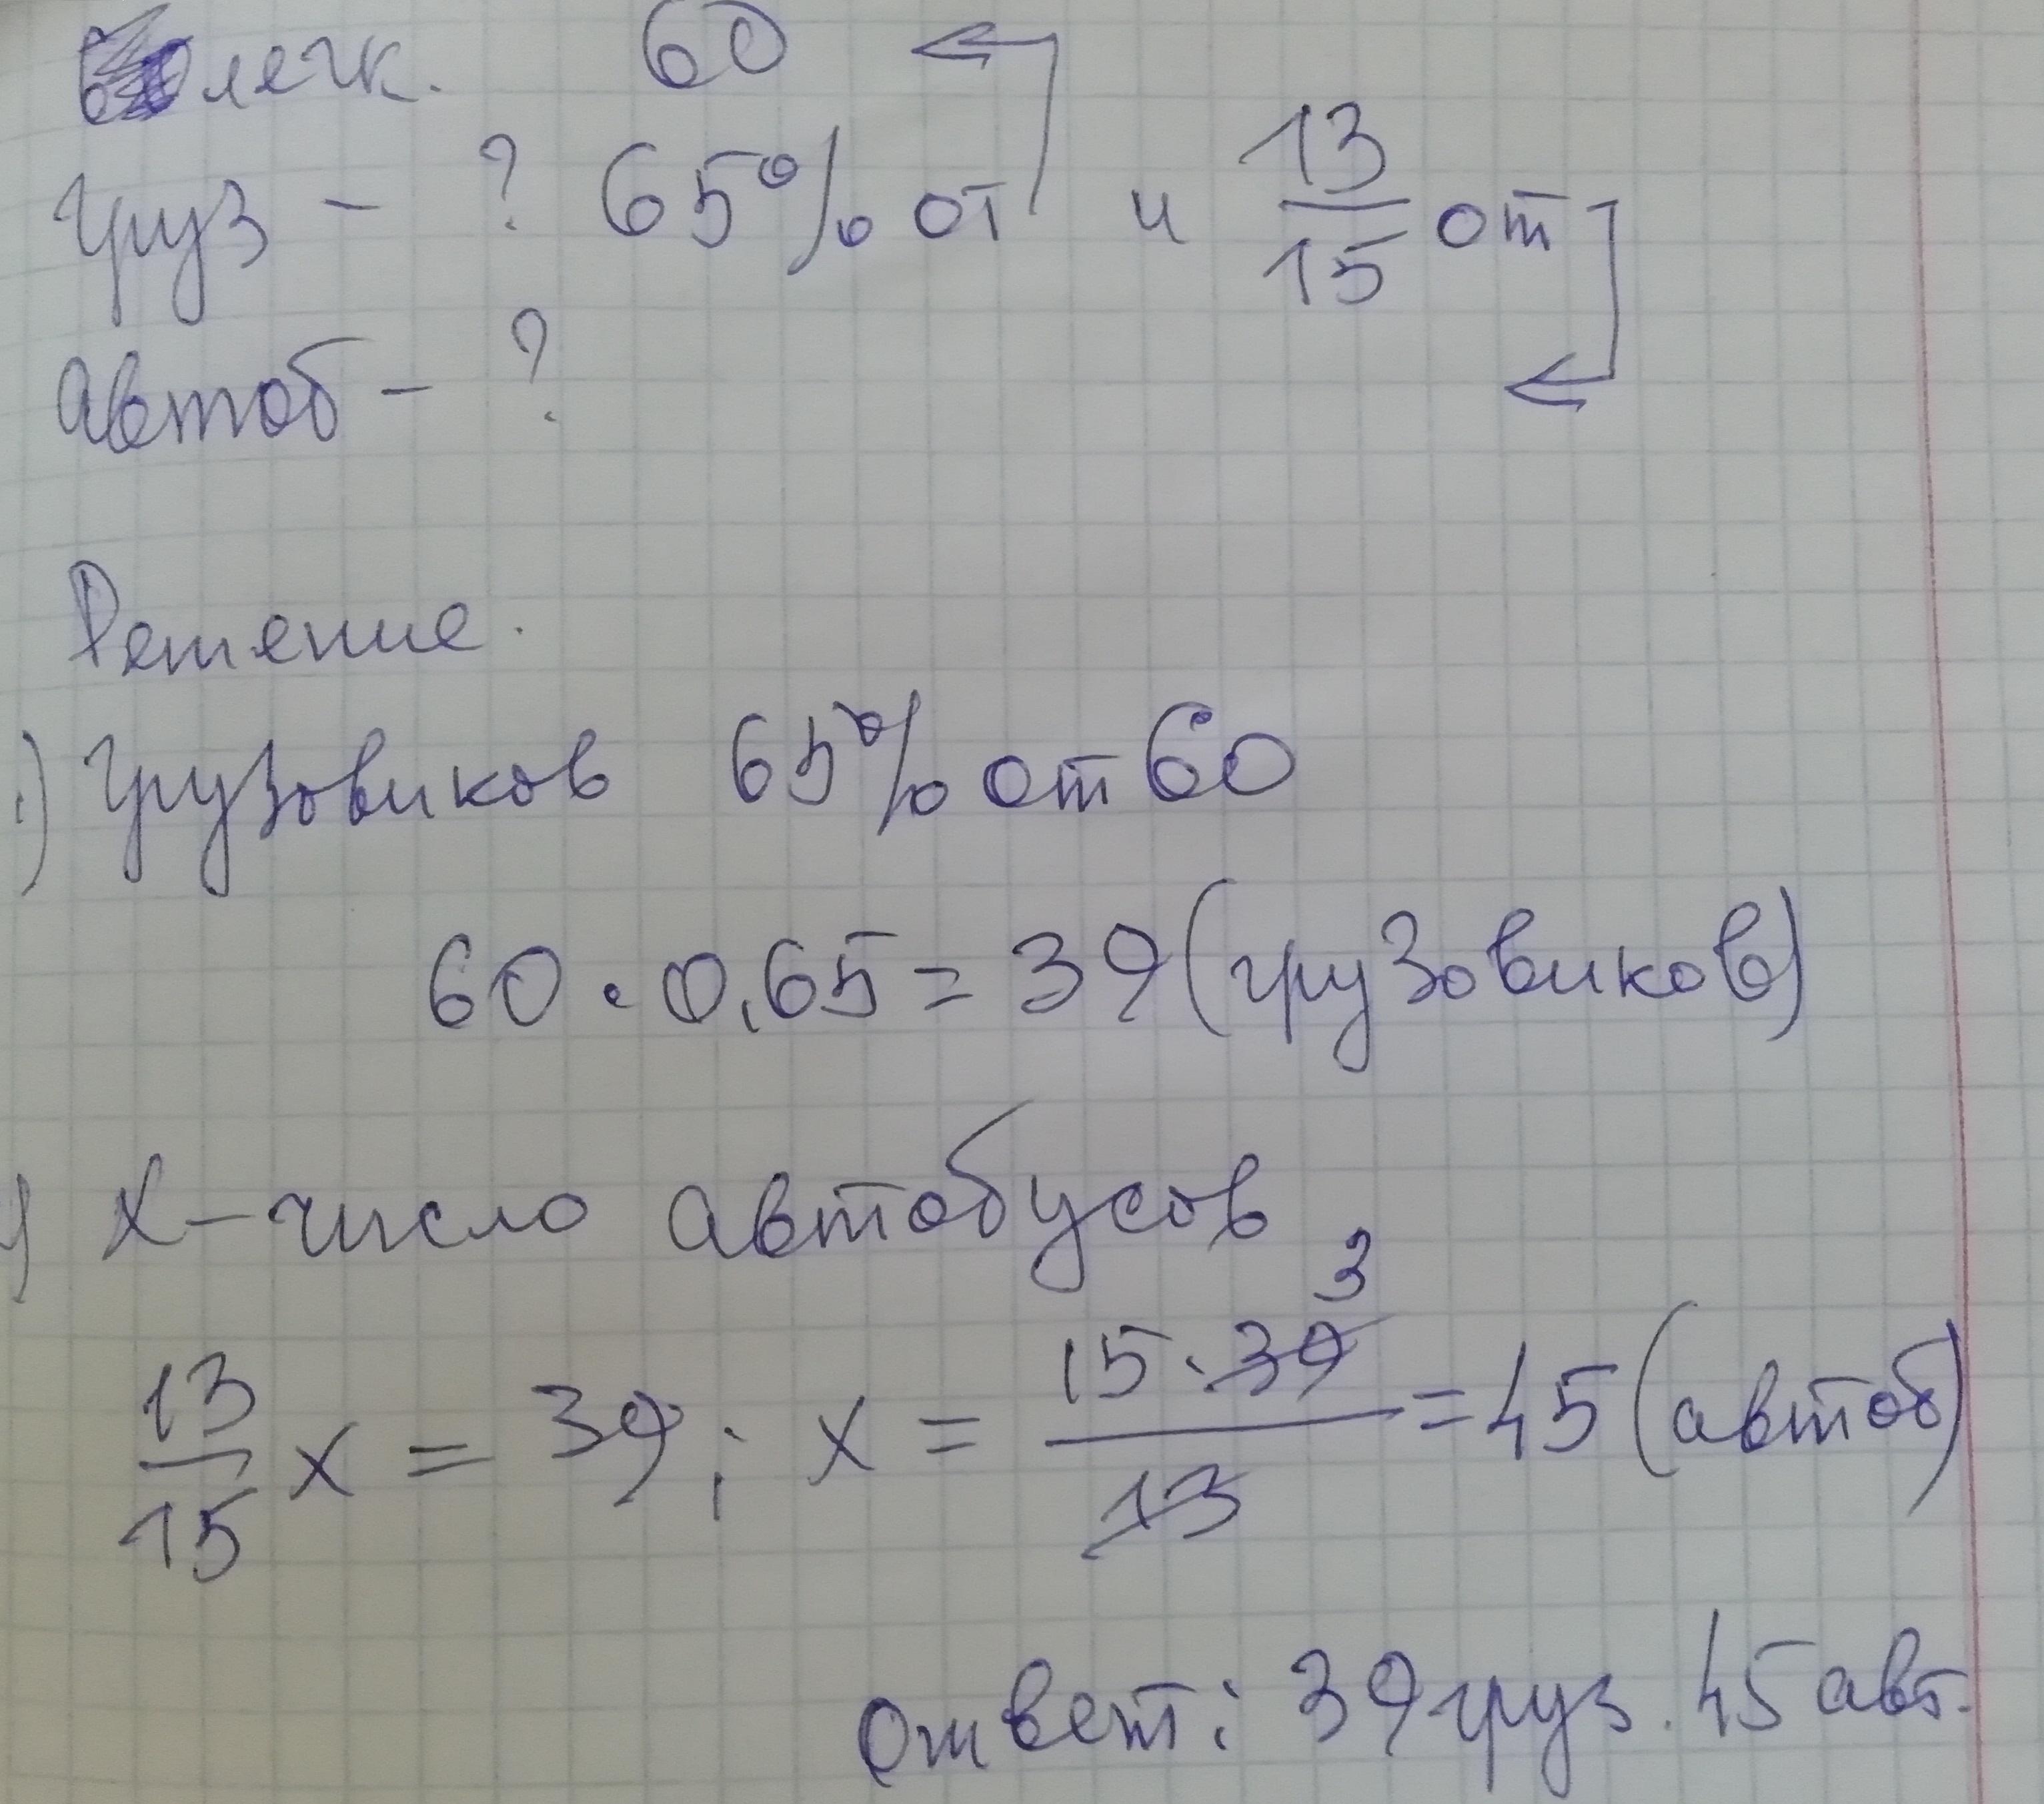 легк. 60
груз - ? 65% от и 13/15 от
автоб - ?
Решение.
1) грузовиков 65% от 60
60 · 0,65 = 39 (грузовиков)
) х - число автобусов
13/15 х = 39; х = 15 · 39 3 / 13 = 45 (автоб)
Ответ: 39 груз. 45 авт.